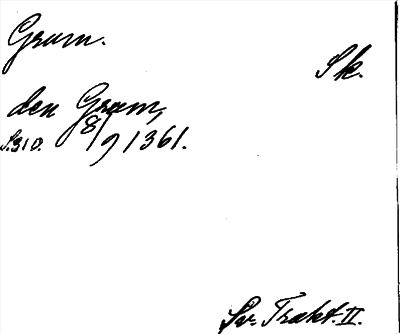 Grum.
Sk.
den Grum,
S. 310. 8/9 1361.
Sv. Trakt. II.